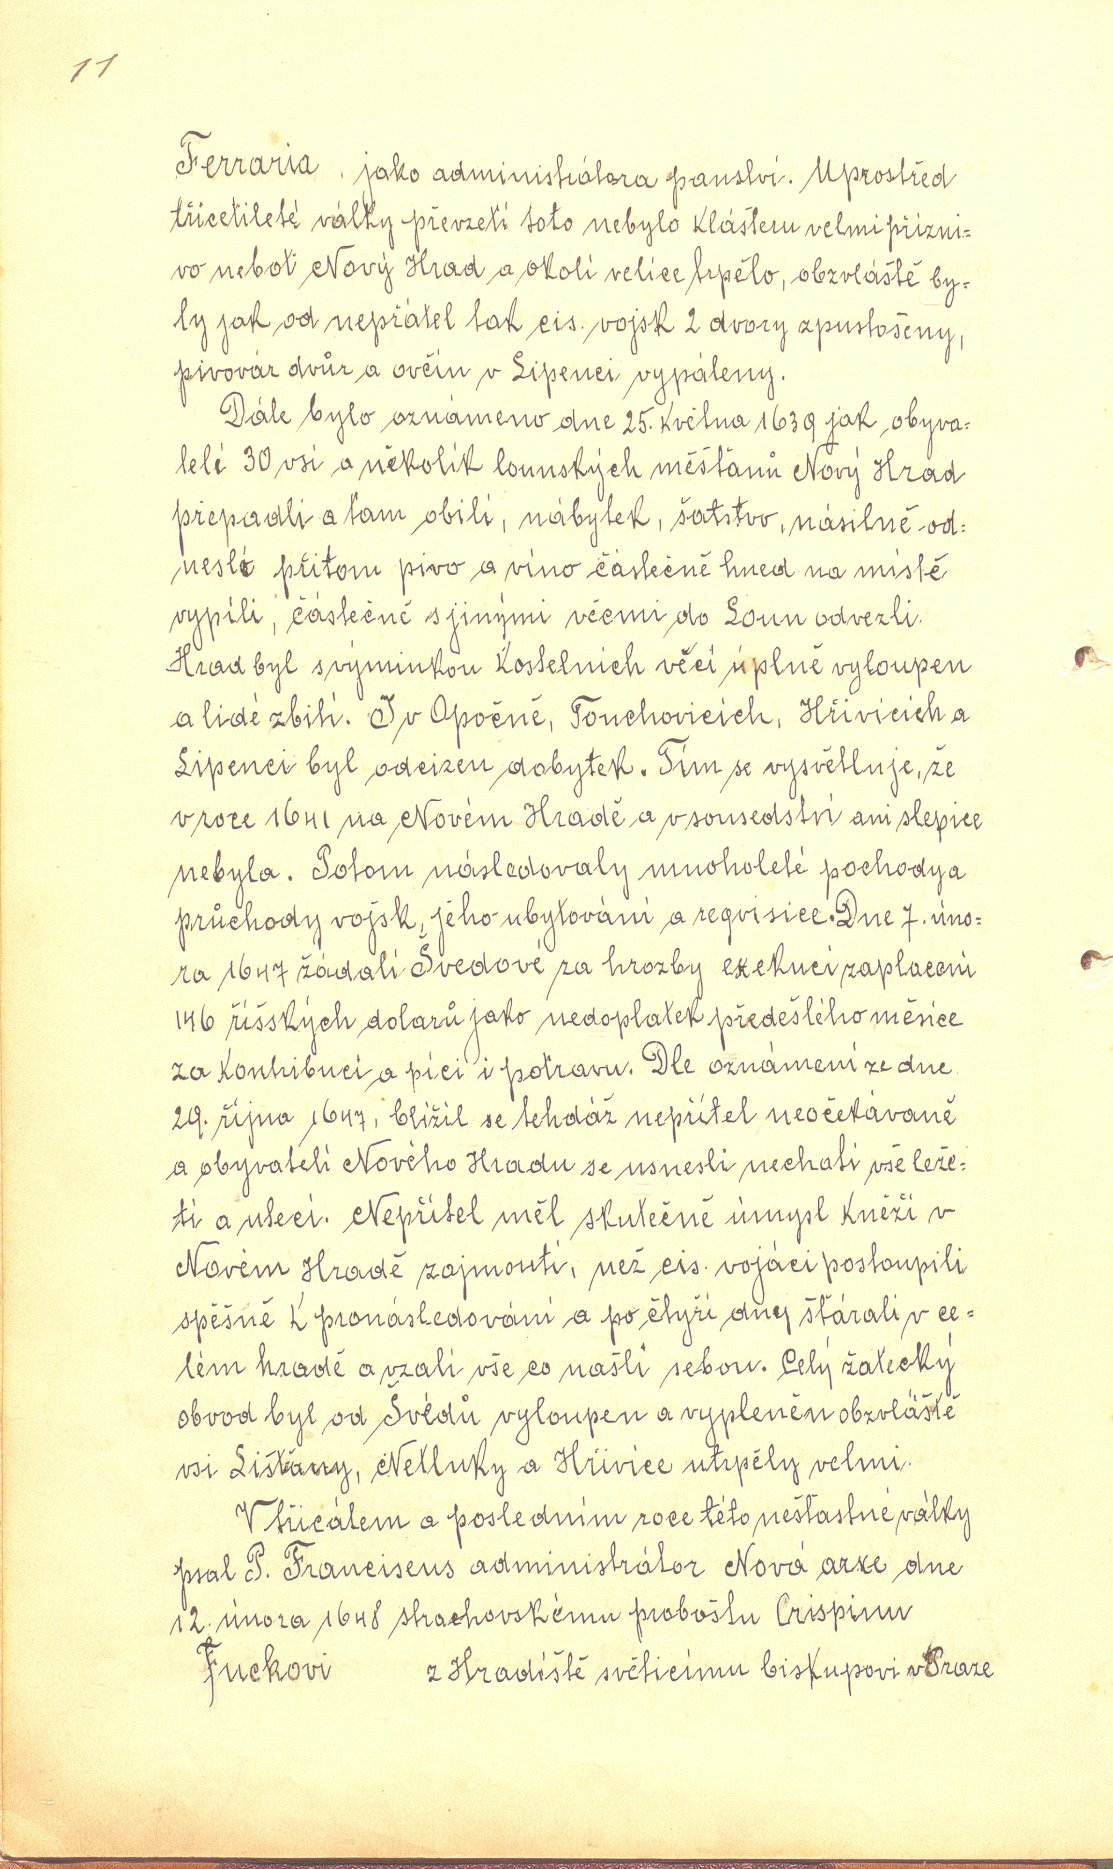 11
Ferraria jako administrátora panství. Uprostřed
třicetileté války převzetí toto nebylo klášteru velmi přízni=
vo neboť Nový Hrad a okolí velice trpělo, obzvláště by=
ly jak od nepřátel tak cis. vojsk 2 dvory zpustošeny,
pivovár dvůr a ovčín v Lipenci vypáleny.
Dále bylo oznámeno dne 25. května 1639 jak obyva=
telé 30 vsí a několik lounských měšťanů Nový Hrad
přepadli a tam obilí, nábytek, šatstvo, násilně od=
nesli přitom pivo a víno částečně hned na místě
vypili, částečně s jinými věcmi do Loun odvezli.
Hrad byl s výminkou kostelních věcí úplně vyloupen
a lidé zbiti. I v Opočně, Touchovicích, Hřivicích a
Lipenci byl odcizen dobytek. Tím se vysvětluje, že
v roce 1641 na Novém Hradě a v sousedství ani slepice
nebyla. Potom následovaly mnoholeté pochody a
průchody vojsk, jeho ubytování a reqvisice. Dne 7. úno=
ra 1647 žádali Švedové za hrozby exekuci zaplacení
146 říšských dolarů jako nedoplatek předešlého měsíce
za kontribuci a píci i potravu. Dle oznámení ze dne
29. října 1647, blížil se tehdáž nepřítel neočekávaně
a obyvatelí Nového Hradu se usnesli nechati vše leže=
ti a utéci. Nepřítel měl skutečně úmysl kněží v
Novém Hradě zajmouti, než cis. vojáci postoupili
spěšně k pronásledování a po čtyři dny štárali v ce=
lém hradě a vzali vše co našli sebou. Celý žatecký
obvod byl od Švédů vyloupen a vypleněn obzvláště
vsi Lišťany, Netluky a Hřivice utrpěly velmi.
V třicátem a posledním roce této nešťastné války
psal P. Franciscus administrátor Nová arxe dne
12. února 1648 strachovskému proboštu Crispinu
Fuckovi z Hradiště světícímu biskupovi v Praze